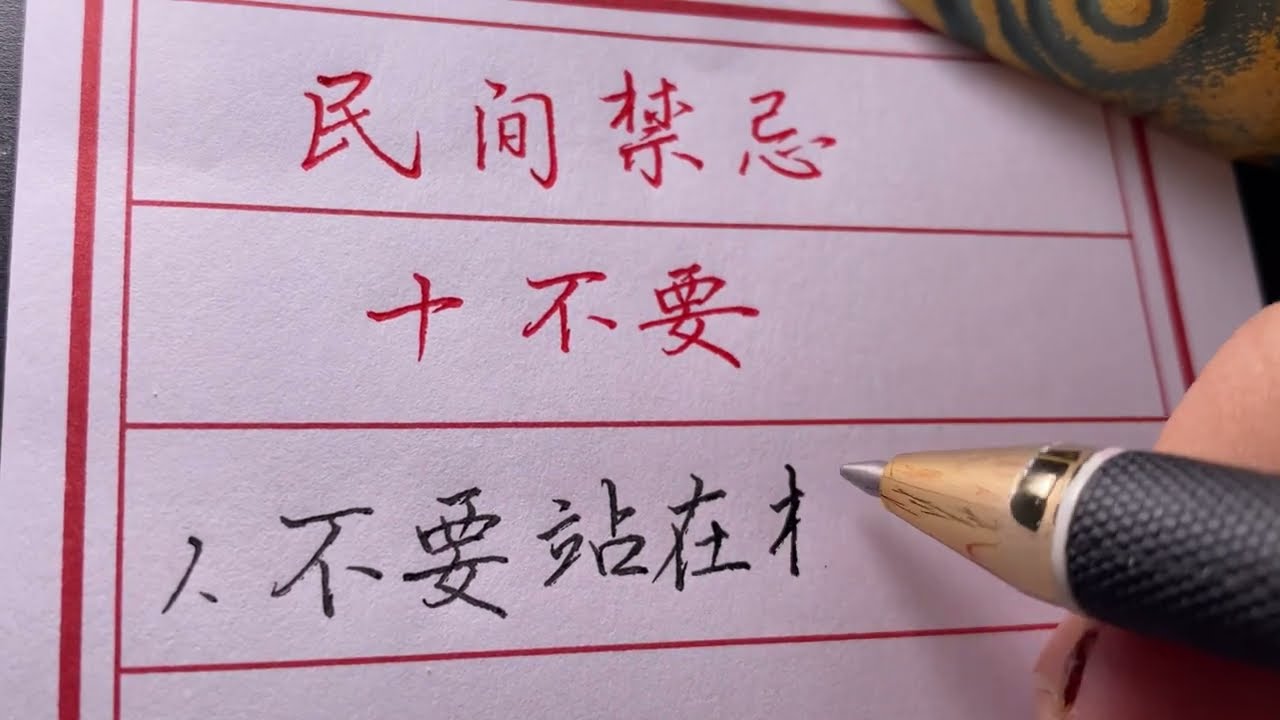 民间禁忌
十不要
1、不要站在